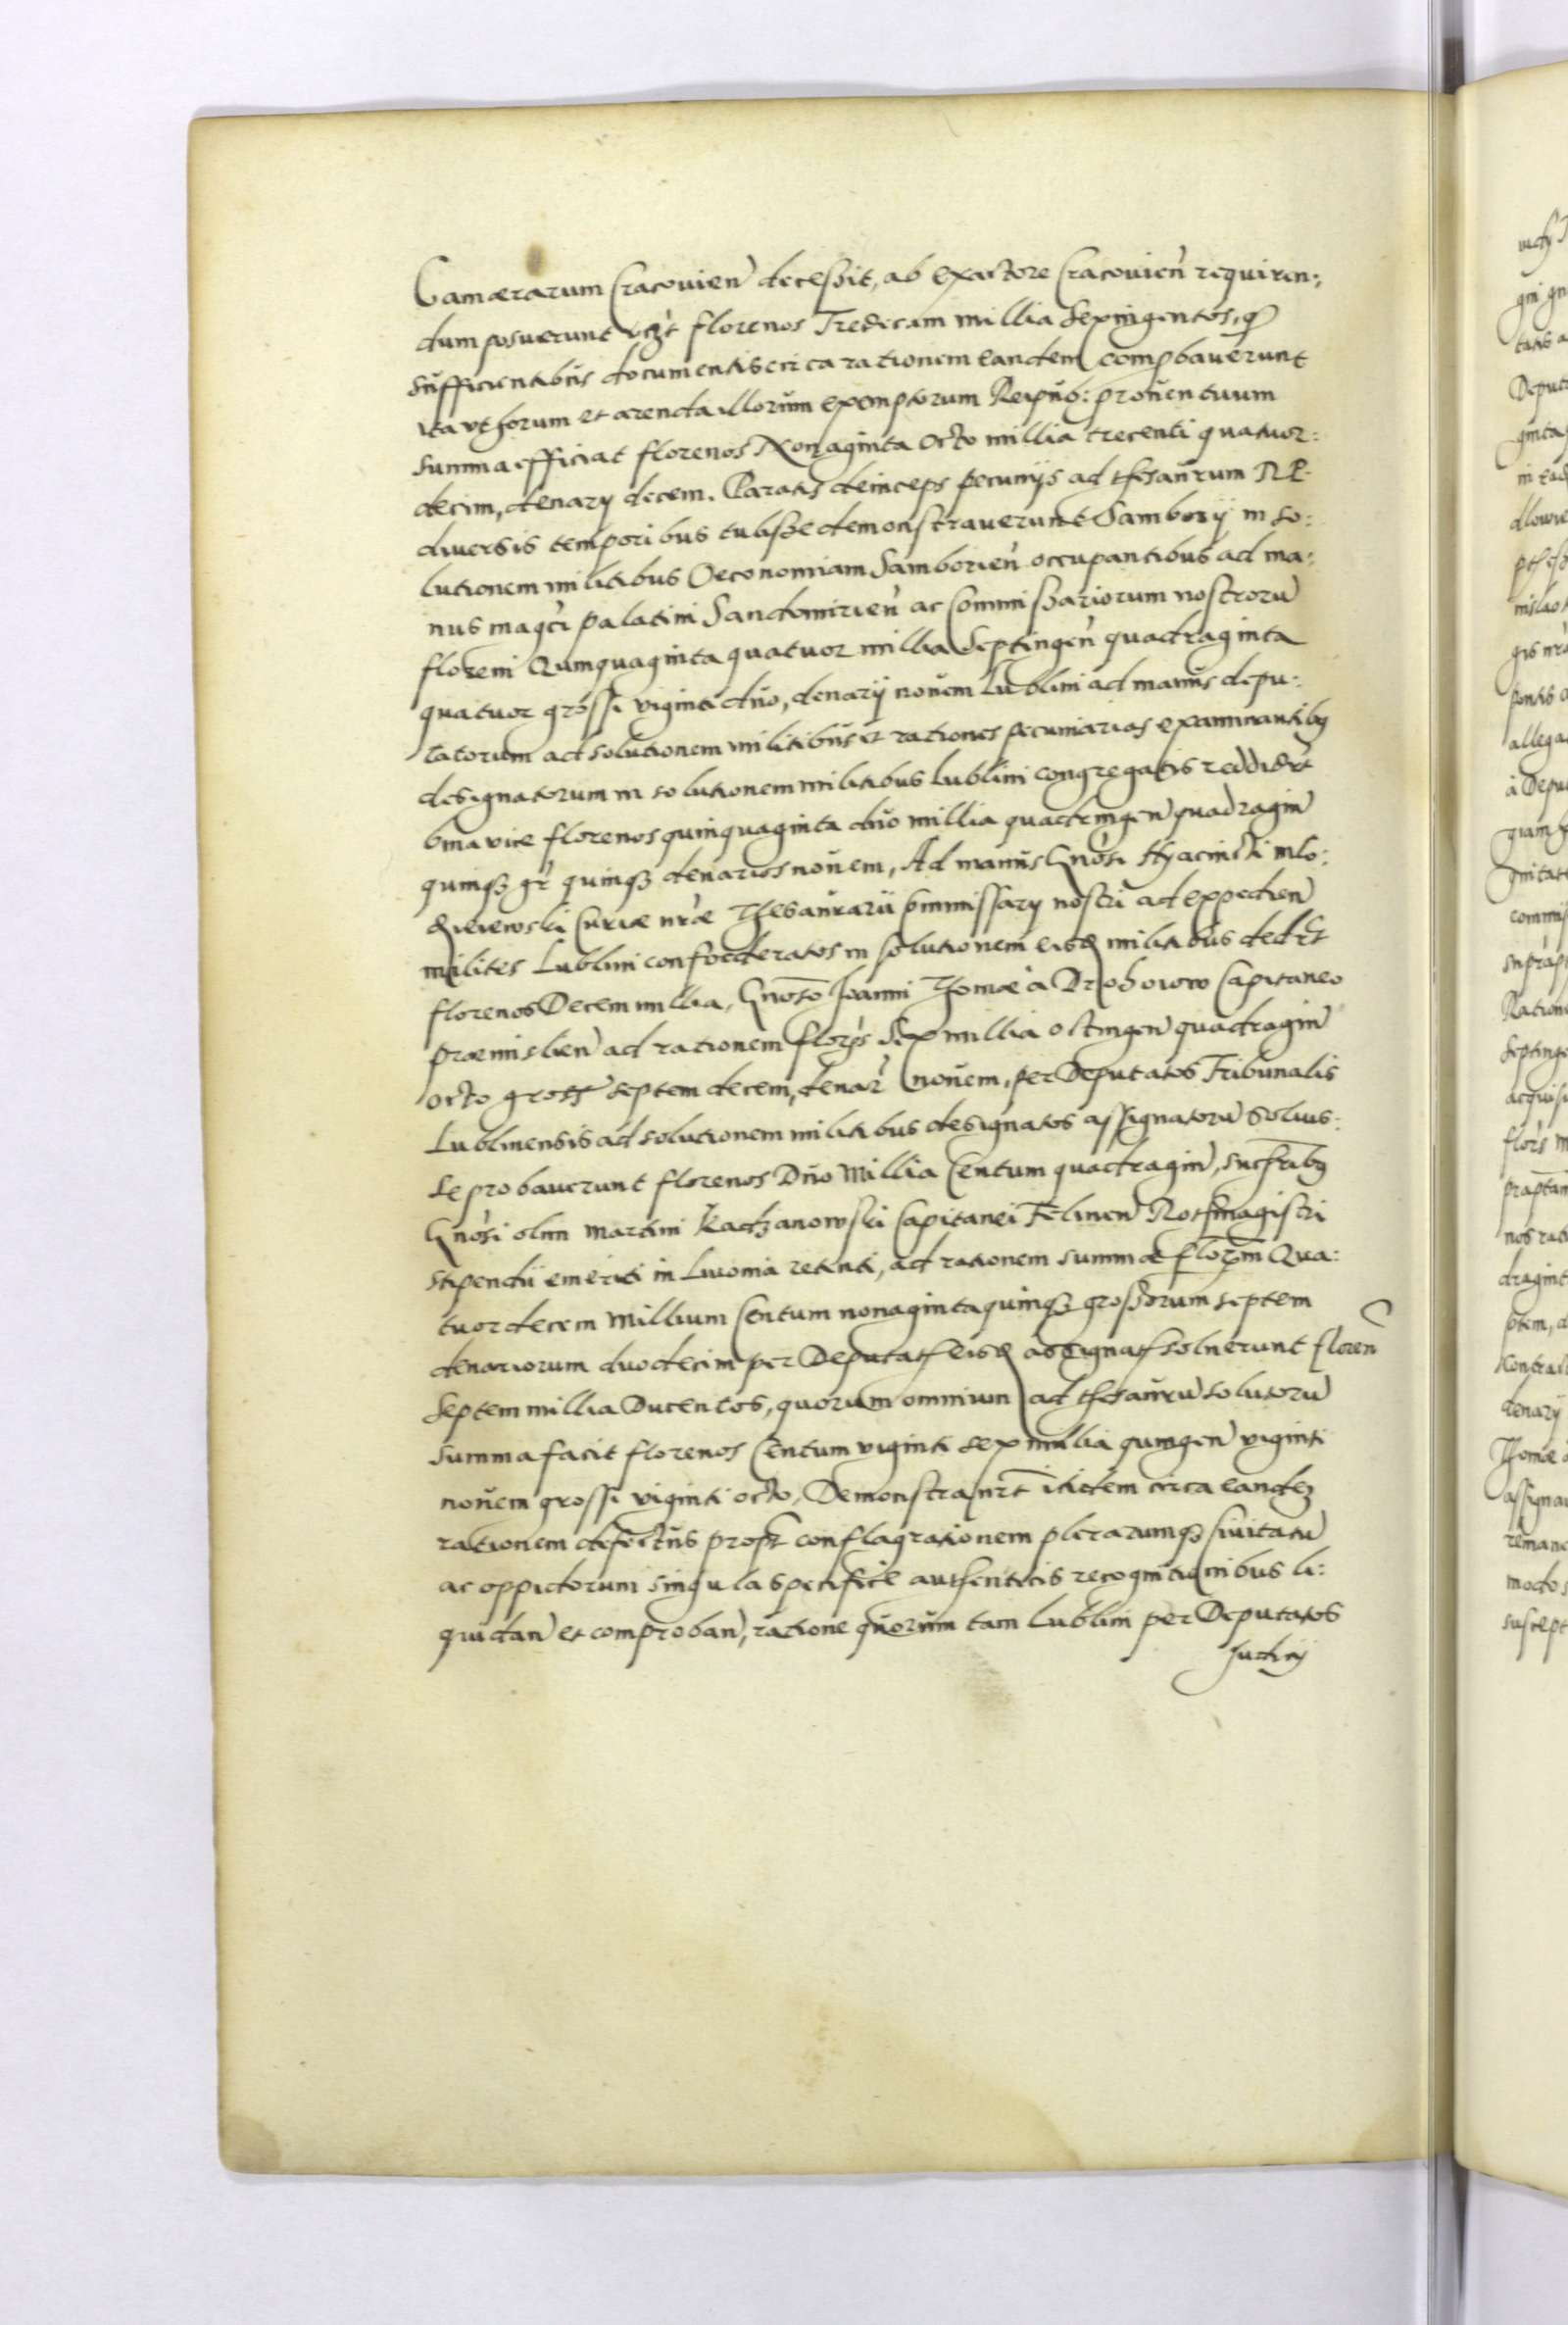 Camerarum Cracovien̄ decessit, ab Exactore Cracovien̄ requiren:
dum posuerunt vczt florenos Tredecim millia Sexingentos, q̄
sufficientibus documentis circa rationem eandem comp̱bauerunt
ita vt horum et arenda illorum exemptorum Reipub: prouentuum
summa efficiat florenos Nonaginta Octo millia trecenti quatuor:
decim, denarÿ decem. Paratis deinceps pecunijs ad thesaurum R.P.
diuersis temporibus tuliße demonstrauerunt Samborij in so:
lutionem militibus Oeconomiam Samborien̄ occupantibus ad ma:
nus magc̄i palatini Sandomirien̄ ac Commißariorum nostrorū
floreni Quinquaginta quatuor millia Septingen̄ quadraginta
quatuor grossi viginti duo, denarij nouem Lublini ad manus depu:
tatorum ad solutionem militibus et rationes pecuniarias examinantibꝫ
designatorum in solutionem militibus Lublini congregatis reddider̄t
bina vice florenos quinquaginta duo millia quadringen̄ quadragin̄
quinqꝫ gr̄ quinqꝫ denarios nouem, Ad manus Gn̄osi Hyacinthi Mlo:
dzieiewski Curiæ nr̄æ Thesaurarii Commissarÿ nostri ad expedien̄
milites Lublini confoederatos in solutionem eisd̄ militibus deder̄t
florenos Decem millia, Gn̄oso Joanni Thomæ à Drohoiow Capitaneo
præmislien̄ ad rationem flor̄s Sex millia octingen̄ quadragin̄
octo gross septem decem, denar̄ nouem, per Deputatos Tribunalis
Lublinensis ad solutionem militibus designatos assignatorū Soluis:
se probauerunt florenos Duo Millia Centum quadragin̄, Succ̄ribꝫ
Gn̄osi olim Martini Kadzanowski Capitanei Felinen̄ Rothmagistri
stipendii emeriti in Liuonia retenti, ad rationem summæ flor̄m Qua:
tuordecem Millium Centum nonaginta quinqꝫ großorum septem
denariorum duodecim per Deputatꝭ eisd̄ assignatꝭ soluerunt floren̄
Septem millia Ducentos, quorum omnium ad thesaurū solutorū
summa facit florenos Centum viginti sex millia quingen̄ viginti
nouem grossi viginti octo, Demonstrar̄nt itidem circa eandeꝫ
rationem defectus propt̄ conflagrationem plerarumqꝫ Ciuitatū
ac oppidorum singula specifice authenticis recognitionibus li:
quidan̄ et comproban̄, ratione quorum tam Lublini per Deputatos
Judicÿ